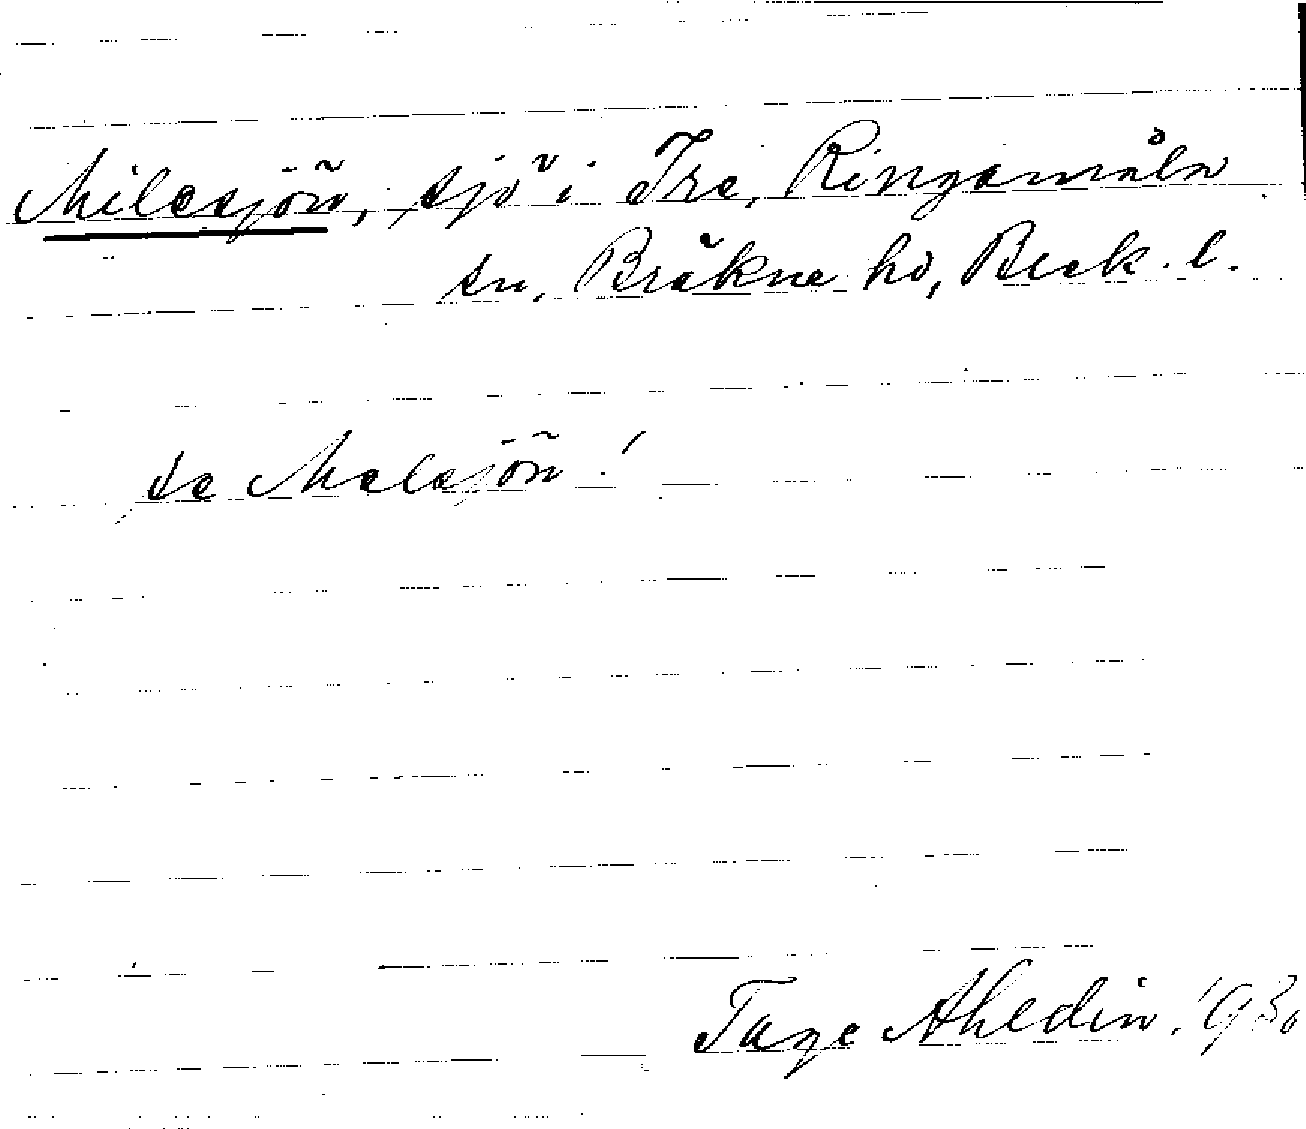 Milasjön, sjö i Tra, Ringamåla
sn, Bräkne hd, Blek. l.
se Malasjön!
Tage Ahldin. 1930